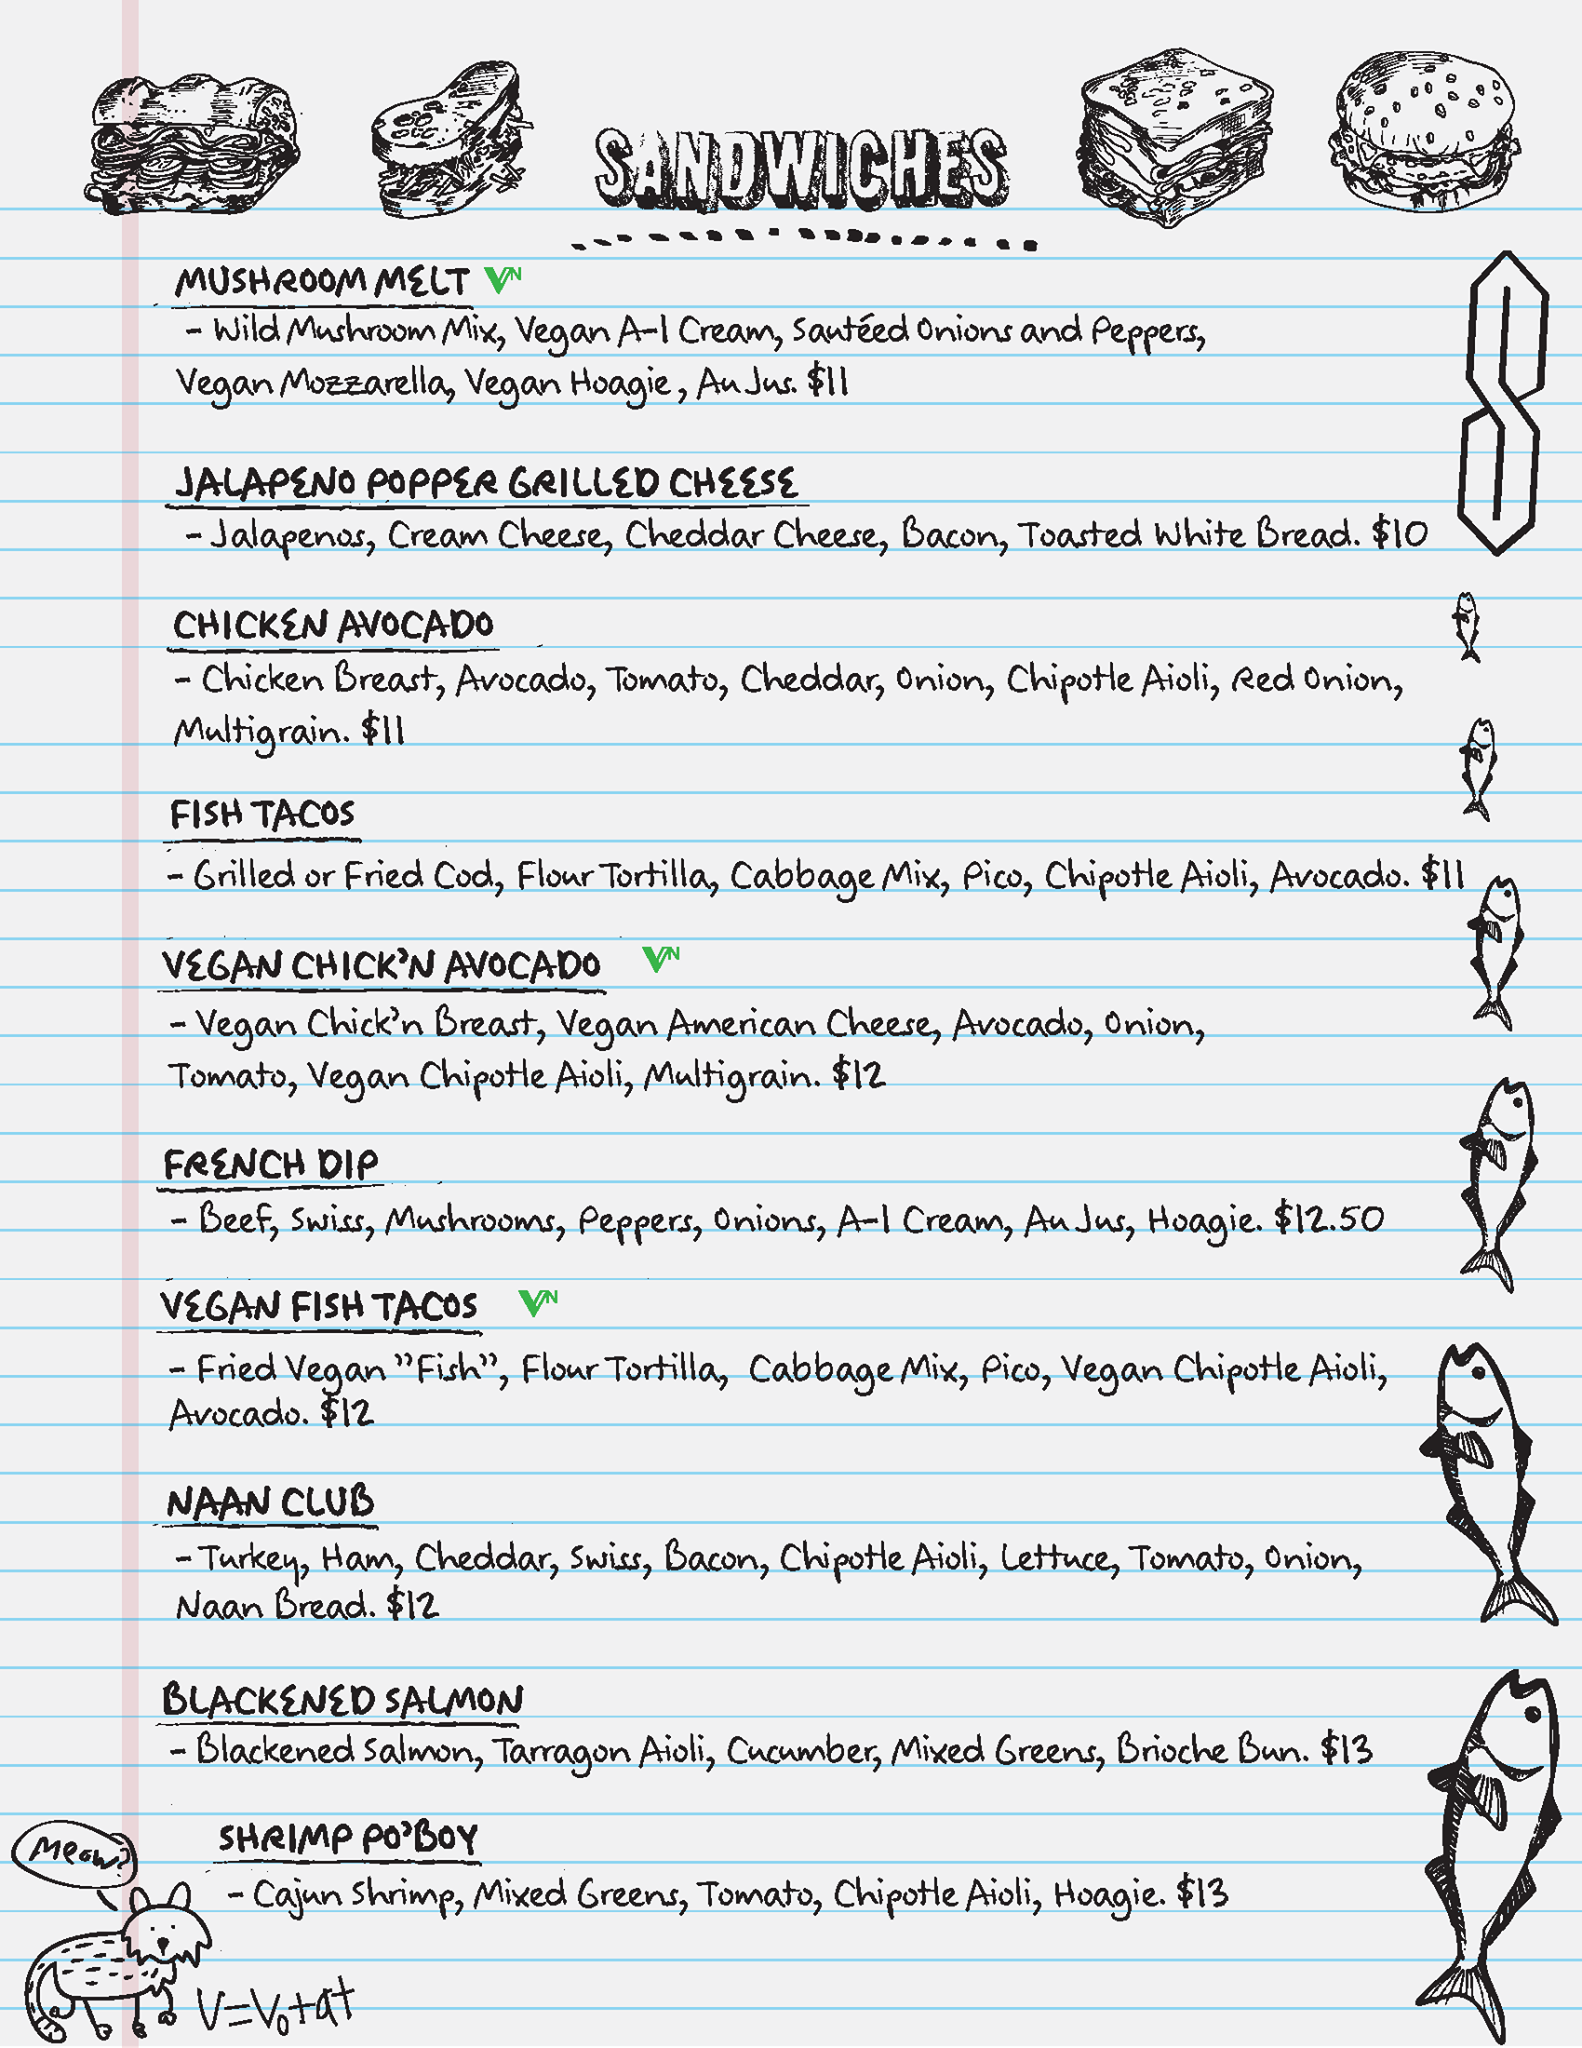 SANDWICHES
MUSHROOM MELT VN
- Wild Mushroom Mix, Vegan A-1 Cream, Sautéed Onions and Peppers,
Vegan Mozzarella, Vegan Hoagie, Au Jus. $11
JALAPENO POPPER GRILLED CHEESE
- Jalapenos, Cream Cheese, Cheddar Cheese, Bacon, Toasted White Bread. $10
CHICKEN AVOCADO
- Chicken Breast, Avocado, Tomato, Cheddar, Onion, Chipotle Aioli, Red Onion,
Multigrain. $11
FISH TACOS
- Grilled or Fried Cod, Flour Tortilla, Cabbage Mix, Pico, Chipotle Aioli, Avocado. $11
VEGAN CHICK'N AVOCADO VN
- Vegan Chick'n Breast, Vegan American Cheese, Avocado, Onion,
Tomato, Vegan Chipotle Aioli, Multigrain. $12
FRENCH DIP
- Beef, Swiss, Mushrooms, Peppers, Onions, A-1 Cream, Au Jus, Hoagie. $12.50
VEGAN FISH TACOS VN
- Fried Vegan "Fish", Flour Tortilla, Cabbage Mix, Pico, Vegan Chipotle Aioli,
Avocado. $12
NAAN CLUB
- Turkey, Ham, Cheddar, Swiss, Bacon, Chipotle Aioli, Lettuce, Tomato, Onion,
Naan Bread. $12
BLACKENED SALMON
- Blackened Salmon, Tarragon Aioli, Cucumber, Mixed Greens, Brioche Bun. $13
SHRIMP PO'BOY
- Cajun Shrimp, Mixed Greens, Tomato, Chipotle Aioli, Hoagie. $13
Meow?
V=V₀+at